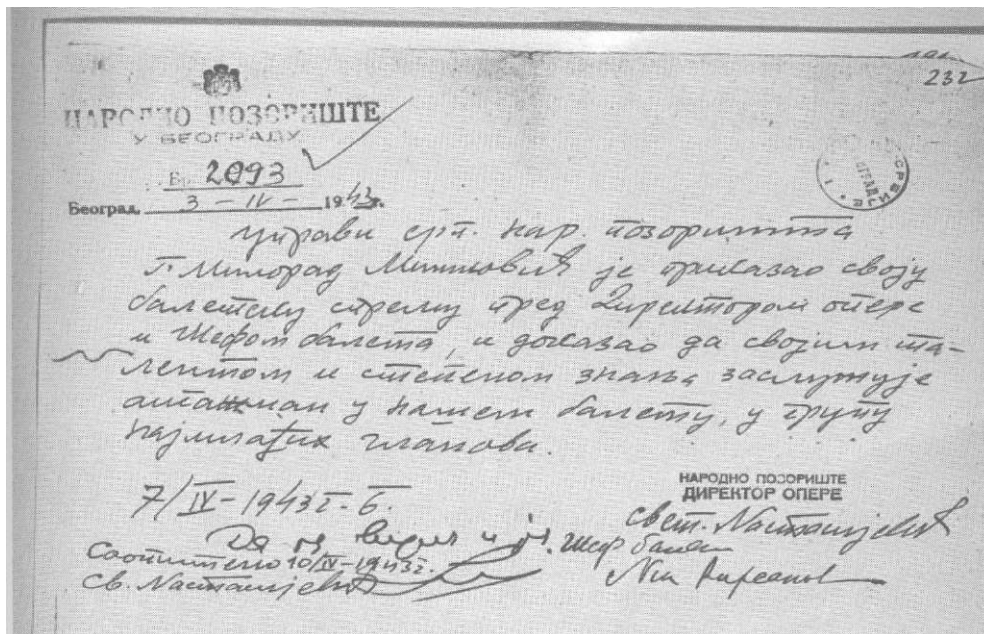 232
НАРОДНО ПОЗОРИШТЕ
У БЕОГРАДУ
Бр. 2093
Београд, 3 – IV – 1943г.
Управи срп. нар. позоришта
Г. Милорад Мишковић је приказао своју
балетску спрему пред Директором опере
и Шефом балета, и доказао да својим та-
лентом и степеном знања заслужује
ангажман у нашем балету, у групу
најмлађих чланова.
7/IV – 1943 г. Б.
НАРОДНО ПОЗОРИШТЕ
ДИРЕКТОР ОПЕРЕ
Свет. Настасијевић
Да га видим и ја.
Шеф балета
Саопштено 10/IV–1943г.
Св. Настасијевић